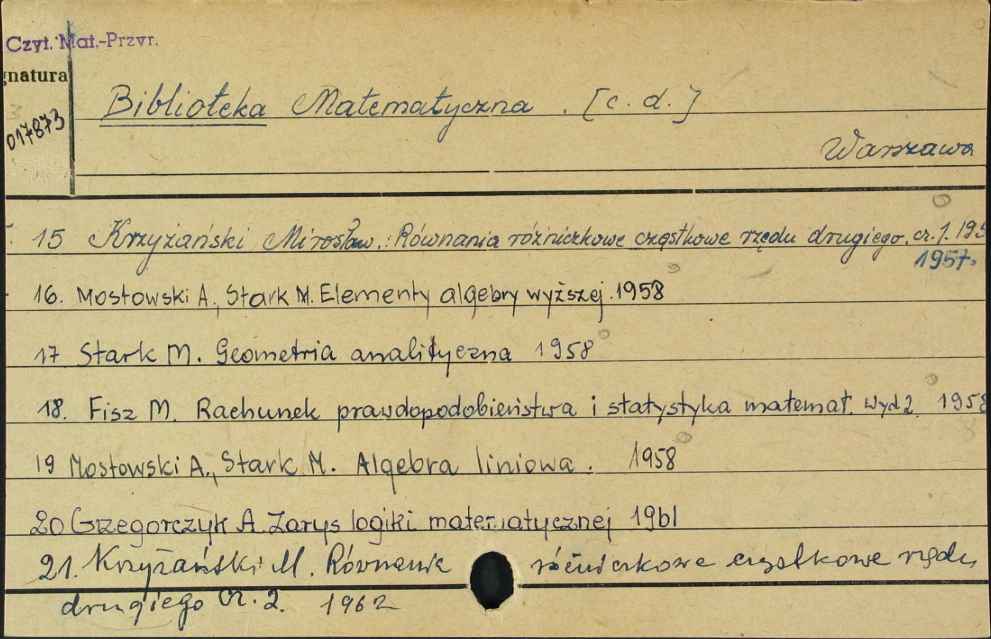 Czyt. Mat.-Przyr.
gnatura
017873
Biblioteka Matematyczna. [c. d.]
Warszawa
15 Krzyżański Mirosław.: Równania różniczkowe cząstkowe rzędu drugiego. cz. 1. 195
1957.
16. Mostowski A., Stark M. Elementy algebry wyższej. 1958
17 Stark M. Geometria analityczna 1958
18. Fisz M. Rachunek prawdopodobieństwa i statystyka matemat. wyd 2. 1958
19 Mostowski A., Stark M. Algebra liniowa. 1958
20 Grzegorczyk A. Zarys logiki matematycznej 1961
21. Krzyżański M. Równania różniczkowe cząstkowe rzędu
drugiego Cz. 2. 1962